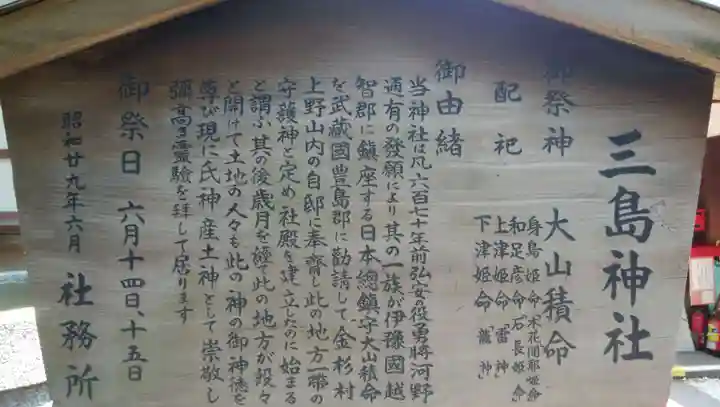 三島神社
御祭神 大山積命
配祀 身島姫命「木花開耶姫命」
和足彦命「石長姫命」
上津姫命「雷神」
下津姫命「龍神」
御由緒
当神社は凡六百七十年前弘安の役勇將河野
通有の發願により其の一族が伊豫國越
智郡に鎮座する日本總鎮守大山積命
を武蔵國豊島郡に勧請して金杉村
上野山内の自邸に奉齋し此の地方一帯の
守護神と定め社殿を建立したのに始まる
と謂ふ其の後歳月を經て此の地方が段々
と開けて土地の人々も此の神の御神徳を
尊び現に氏神産土神として崇敬し
彌高き靈驗を拜して居ります
御祭日 六月十四日、十五日
昭和廿九年六月 社務所